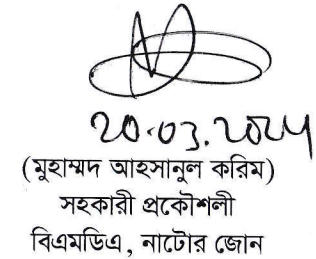 20.03.2024
(মুহাম্মদ আহসানুল করিম)
সহকারী প্রকৌশলী
বিএমডিএ, নাটোর জোন